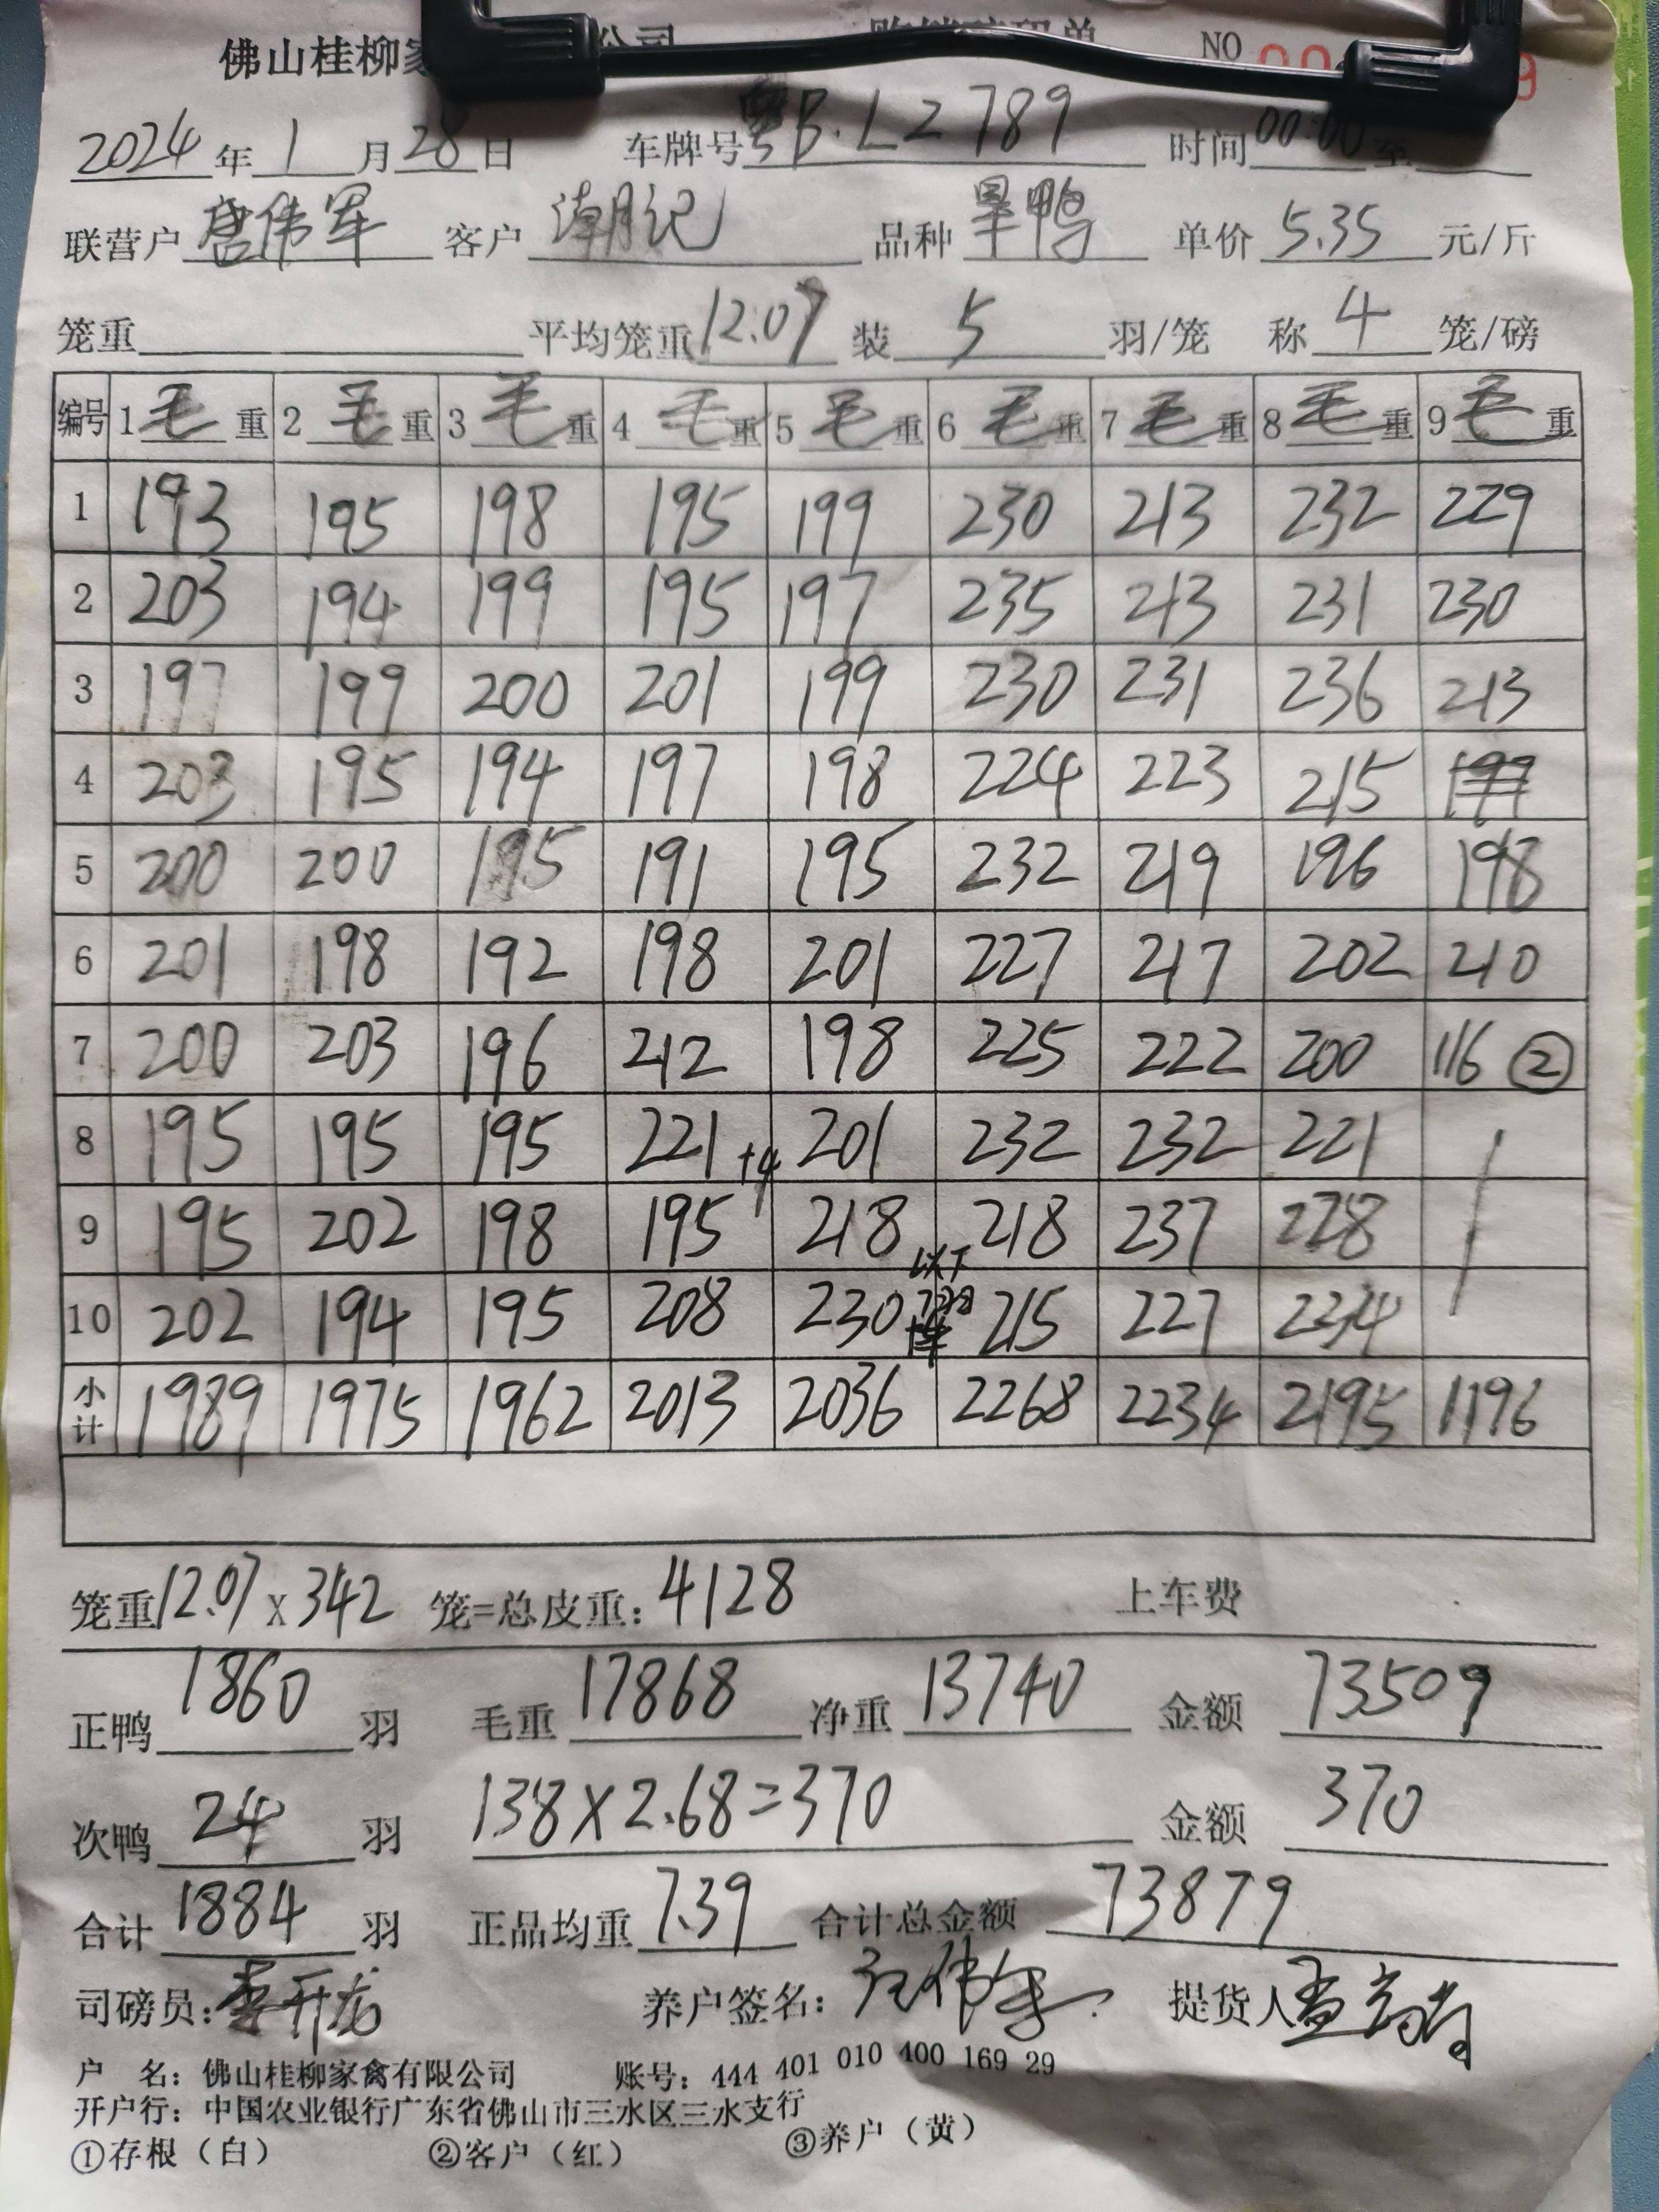 佛山桂柳家 公司 NO 9
2024年1月28日 车牌号 粤B·L2789 时间00:00至
联营户 唐伟军 客户 潮记 品种 旱鸭 单价 5.35 元/斤
笼重 平均笼重12.07 装 5 羽/笼 称 4 笼/磅
编号 1毛重 2毛重 3毛重 4毛重 5毛重 6毛重 7毛重 8毛重 9毛重
1 193 195 198 195 199 230 213 232 229
2 203 194 199 195 197 235 213 231 230
3 197 199 200 201 199 230 231 236 213
4 203 195 194 197 198 224 223 215
5 200 200 195 191 195 232 219 196 198
6 201 198 192 198 201 227 217 202 210
7 200 203 196 212 198 225 222 200 116 ②
8 195 195 195 221 +4 201 232 232 221
9 195 202 198 195 218 218 237 228
以下
10 202 194 195 208 230 215 227 234
小计 1989 1975 1962 2013 2036 2268 2234 2195 1196
笼重12.07 X 342 笼=总皮重：4128 上车费
正鸭 1860 羽 毛重 17868 净重 13740 金额 73509
次鸭 24 羽 138×2.68=370 金额 370
合计 1884 羽 正品均重 7.39 合计总金额 73879
司磅员：李开龙 养户签名： 提货人
户 名：佛山桂柳家禽有限公司 账号：444 401 010 400 169 29
开户行：中国农业银行广东省佛山市三水区三水支行
①存根（白） ②客户（红） ③养户（黄）